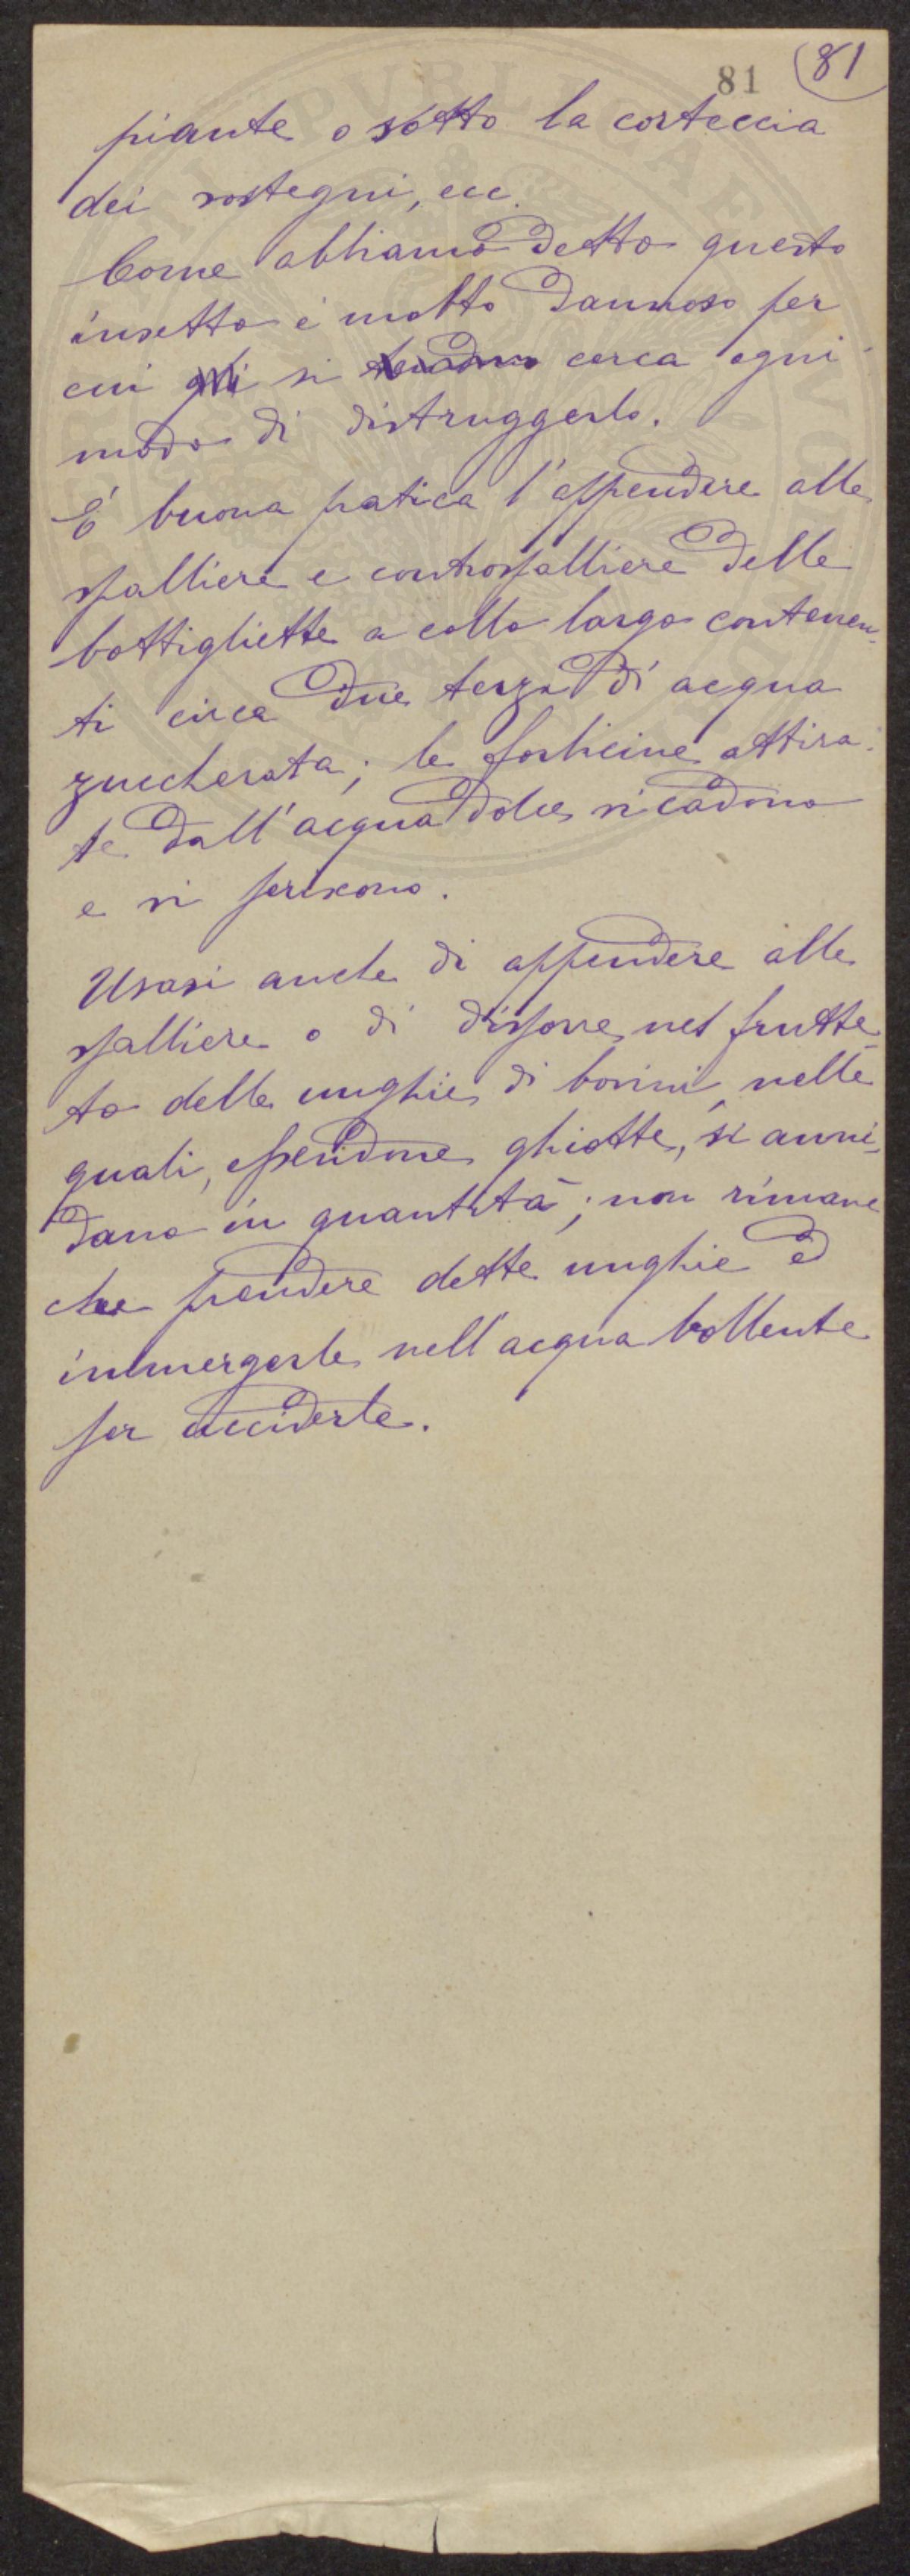 81 81
piante o sotto la corteccia
dei sostegni, ecc.
Come abbiamo detto questo
insetto è molto dannoso per
cui si cerca ogni
modo di distruggerlo.
E' buona pratica l'appendere alle
spalliere e controspalliere delle
bottigliette a collo largo contenen-
ti circa due terzi di acqua
zuccherata; le forbicine attira-
te dall'acqua dolce vi cadono
e vi periscono.
Usasi anche di appendere alle
spalliere o di disporre nel frutte-
to delle unghie di bovini, nelle
quali, essendone ghiotte, si anni-
dano in quantità; non rimane
che prendere dette unghie ed
immergerle nell'acqua bollente
per ucciderle.